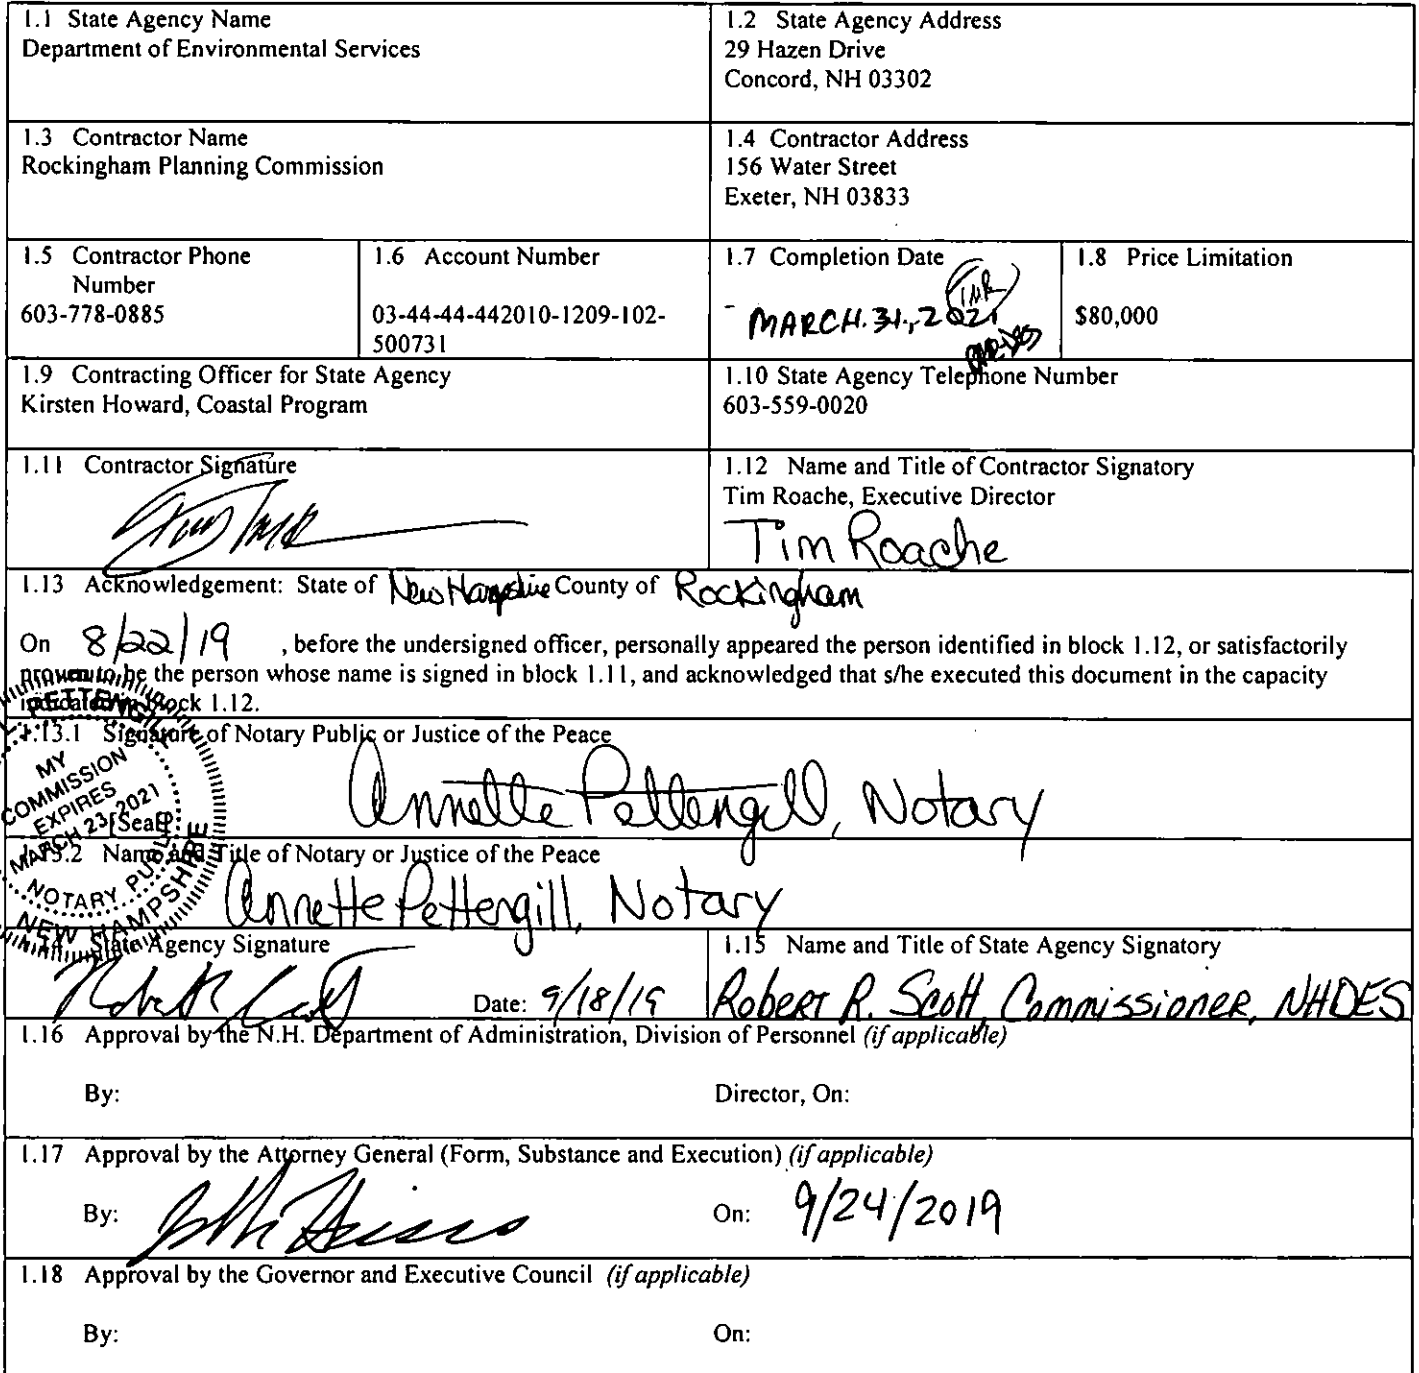 1.1 State Agency Name
Department of Environmental Services
1.2 State Agency Address
29 Hazen Drive
Concord, NH 03302
1.3 Contractor Name
Rockingham Planning Commission
1.4 Contractor Address
156 Water Street
Exeter, NH 03833
1.5 Contractor Phone
Number
603-778-0885
1.6 Account Number
03-44-44-442010-1209-102-
500731
1.7 Completion Date
MARCH.31., 2021
TMR
1.8 Price Limitation
$80,000
1.9 Contracting Officer for State Agency
Kirsten Howard, Coastal Program
1.10 State Agency Telephone Number
603-559-0020
1.11 Contractor Signature
1.12 Name and Title of Contractor Signatory
Tim Roache, Executive Director
Tim Roache
1.13 Acknowledgement: State of New Hampshire County of Rockingham
On 8/22/19 , before the undersigned officer, personally appeared the person identified in block 1.12, or satisfactorily
proven to be the person whose name is signed in block 1.11, and acknowledged that s/he executed this document in the capacity
indicated in block 1.12.
1.13.1 Signature of Notary Public or Justice of the Peace
Annette Pettengill, Notary
[Seal]
PETTENGILL
MY
COMMISSION
EXPIRES
MARCH 23, 2021
NOTARY PUBLIC
NEW HAMPSHIRE
1.13.2 Name and Title of Notary or Justice of the Peace
Annette Pettengill, Notary
1.14 State Agency Signature
Date: 9/18/19
1.15 Name and Title of State Agency Signatory
Robert R. Scott, Commissioner, NHDES
1.16 Approval by the N.H. Department of Administration, Division of Personnel (if applicable)
By:
Director, On:
1.17 Approval by the Attorney General (Form, Substance and Execution) (if applicable)
By:
On: 9/24/2019
1.18 Approval by the Governor and Executive Council (if applicable)
By:
On: